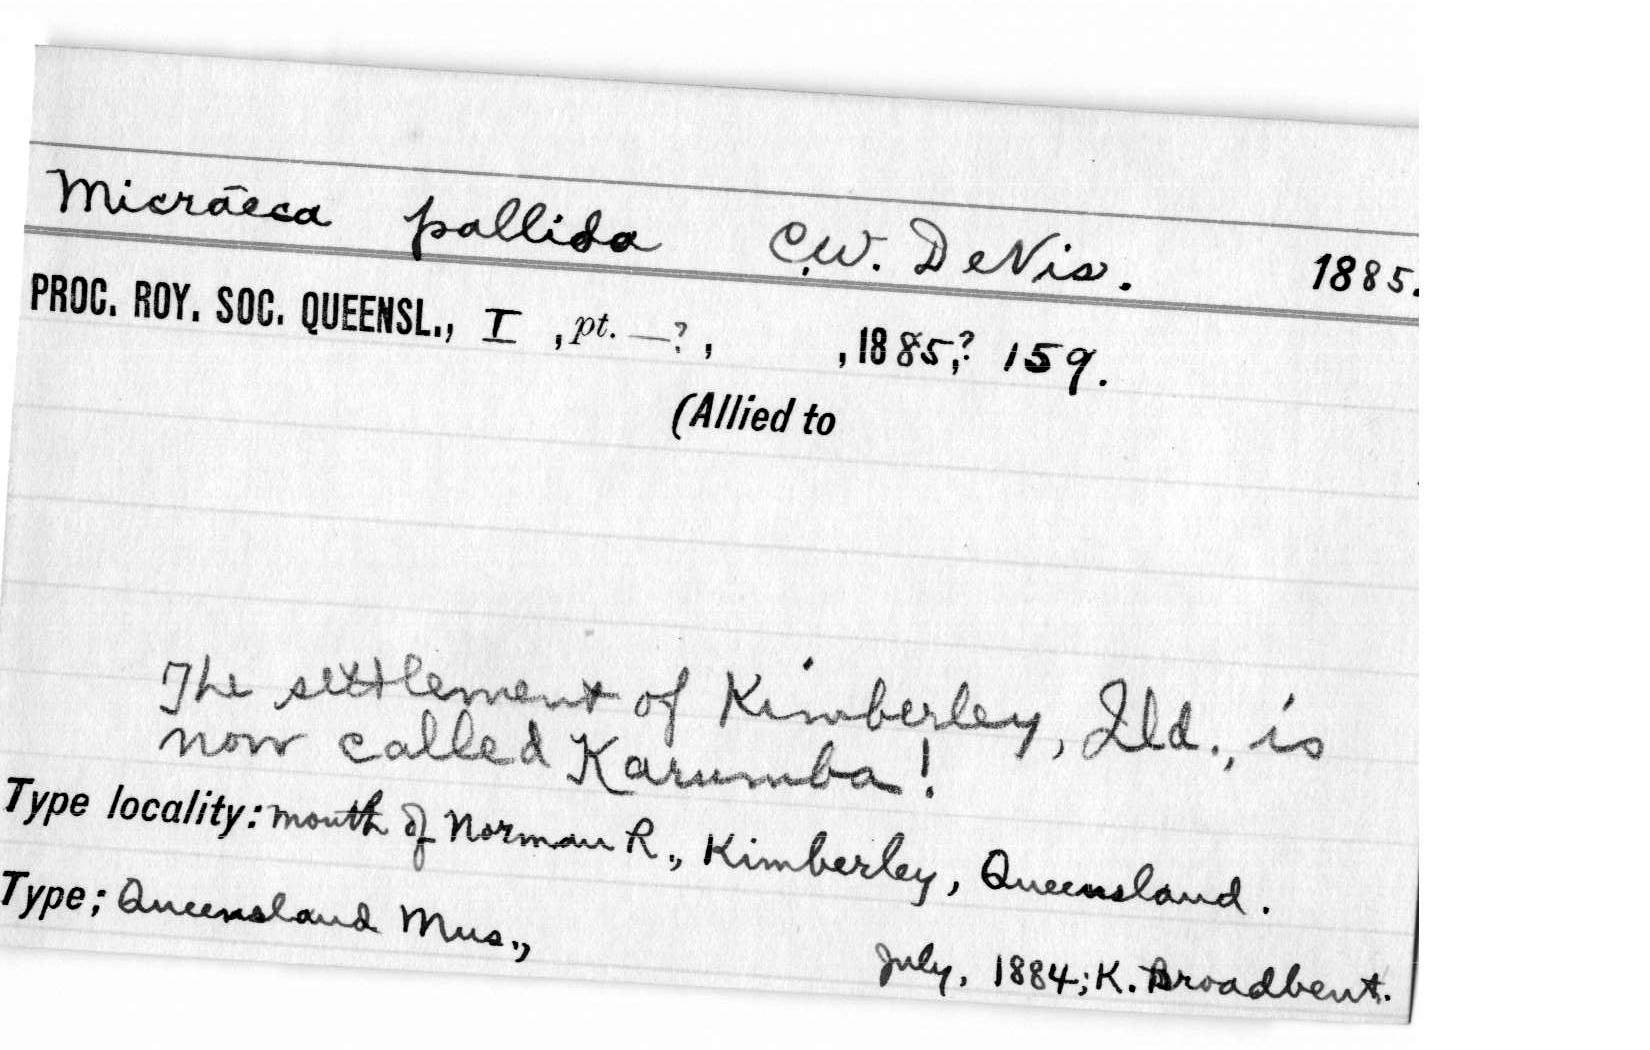 Micræca pallida C.W. DeVis. 1885.
PROC. ROY. SOC. QUEENSL., I , pt. —? , , 1885,? 159.
(Allied to
The settlement of Kimberley, Qld., is
now called Karumba!
Type locality: mouth of Norman R., Kimberley, Queensland.
Type; Queensland Mus.,
July, 1884; K. Broadbent.